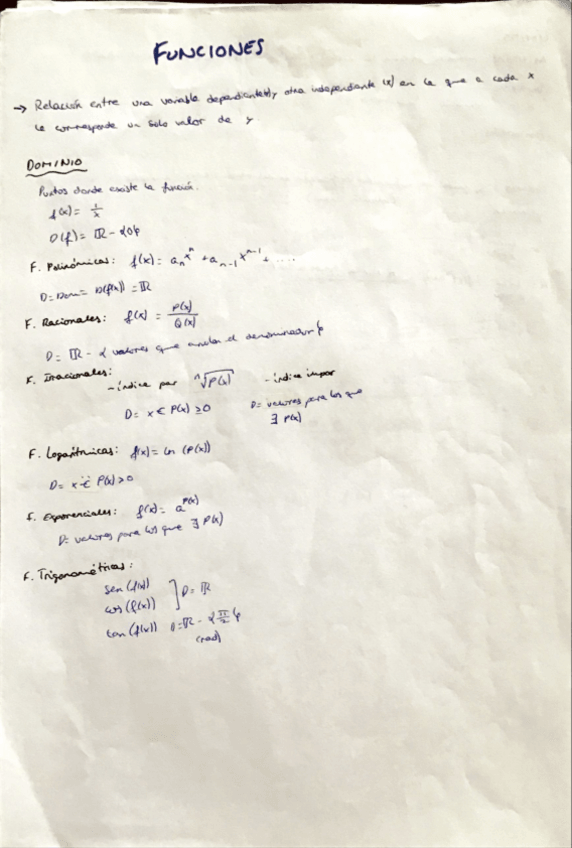 FUNCIONES
→ Relación entre una variable dependiente(y) y otra independiente (x) en la que a cada x
le corresponde un solo valor de y
DOMINIO
Puntos donde existe la función.
f(x) = 1/x
D(f) = ℝ - {0}
F. Polinómicas: f(x) = aₙxⁿ + aₙ₋₁xⁿ⁻¹ + ....
D = Dom = D(f(x)) = ℝ
F. Racionales: f(x) = P(x)/Q(x)
D = ℝ - { valores que anulan el denominador }
F. Irracionales:
- índice par ⁿ√P(x) - índice impar
D = x ∈ P(x) ≥ 0 D = valores para los que
∃ P(x)
F. Logarítmicas: f(x) = Ln (P(x))
D = x ∈ P(x) > 0
F. Exponenciales: f(x) = a^P(x)
D = valores para los que ∃ P(x)
F. Trigonométricas:
sen (f(x))
cos (f(x)) ] D = ℝ
tan (f(x)) D = ℝ - { π/2 }
(rad)